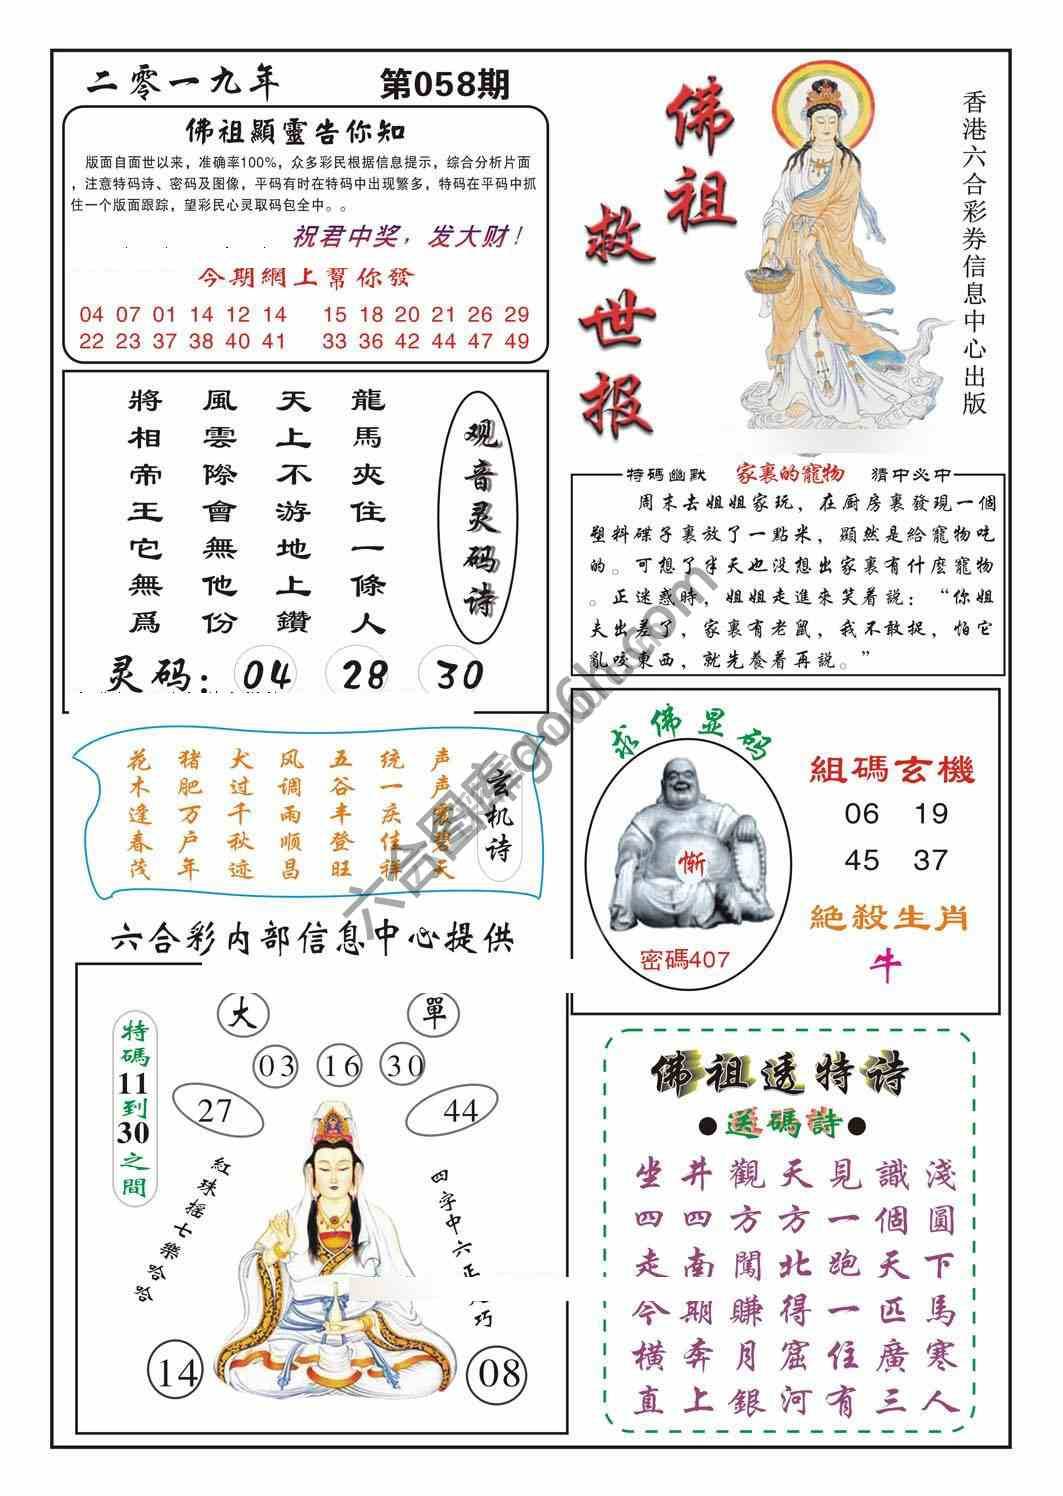 二零一九年
第058期
佛祖顯靈告你知
版面自面世以来，准确率100%，众多彩民根据信息提示，综合分析片面
，注意特码诗、密码及图像，平码有时在特码中出现繁多，特码在平码中抓
住一个版面跟踪，望彩民心灵取码包全中。。
祝君中奖，发大财！
今期網上幫你發
04 07 01 14 12 14 15 18 20 21 26 29
22 23 37 38 40 41 33 36 42 44 47 49
佛祖救世报
香港六合彩券信息中心出版
龍馬夾住一條人
天上不游地上鑽
風雲際會無他份
將相帝王它無爲
观音灵码诗
灵码：04 28 30
特碼幽默 家裏的寵物 猜中必中
周末去姐姐家玩，在厨房裏發現一個
塑料碟子裏放了一點米，顯然是給寵物吃
的。可想了半天也没想出家裏有什麽寵物
。正迷惑時，姐姐走進來笑着説：“你姐
夫出差了，家裏有老鼠，我不敢捉，怕它
亂咬東西，就先養着再説。”
玄机诗
声声震碧天
统一庆佳祥
五谷丰登旺
风调雨顺昌
犬过千秋迹
猪肥万户年
花木逢春茂
求佛显码
惭
密碼407
組碼玄機
06 19
45 37
絶殺生肖
牛
六合彩内部信息中心提供
大
單
03 16 30
27
44
特碼11到30之間
紅珠摇七樂哈哈
四字中六正
巧
14
08
佛祖透特诗
●送碼詩●
坐井觀天見識淺
四四方方一個圓
走南闖北跑天下
今期賺得一匹馬
横奔月窟住廣寒
直上銀河有三人
六合图库go6h.com